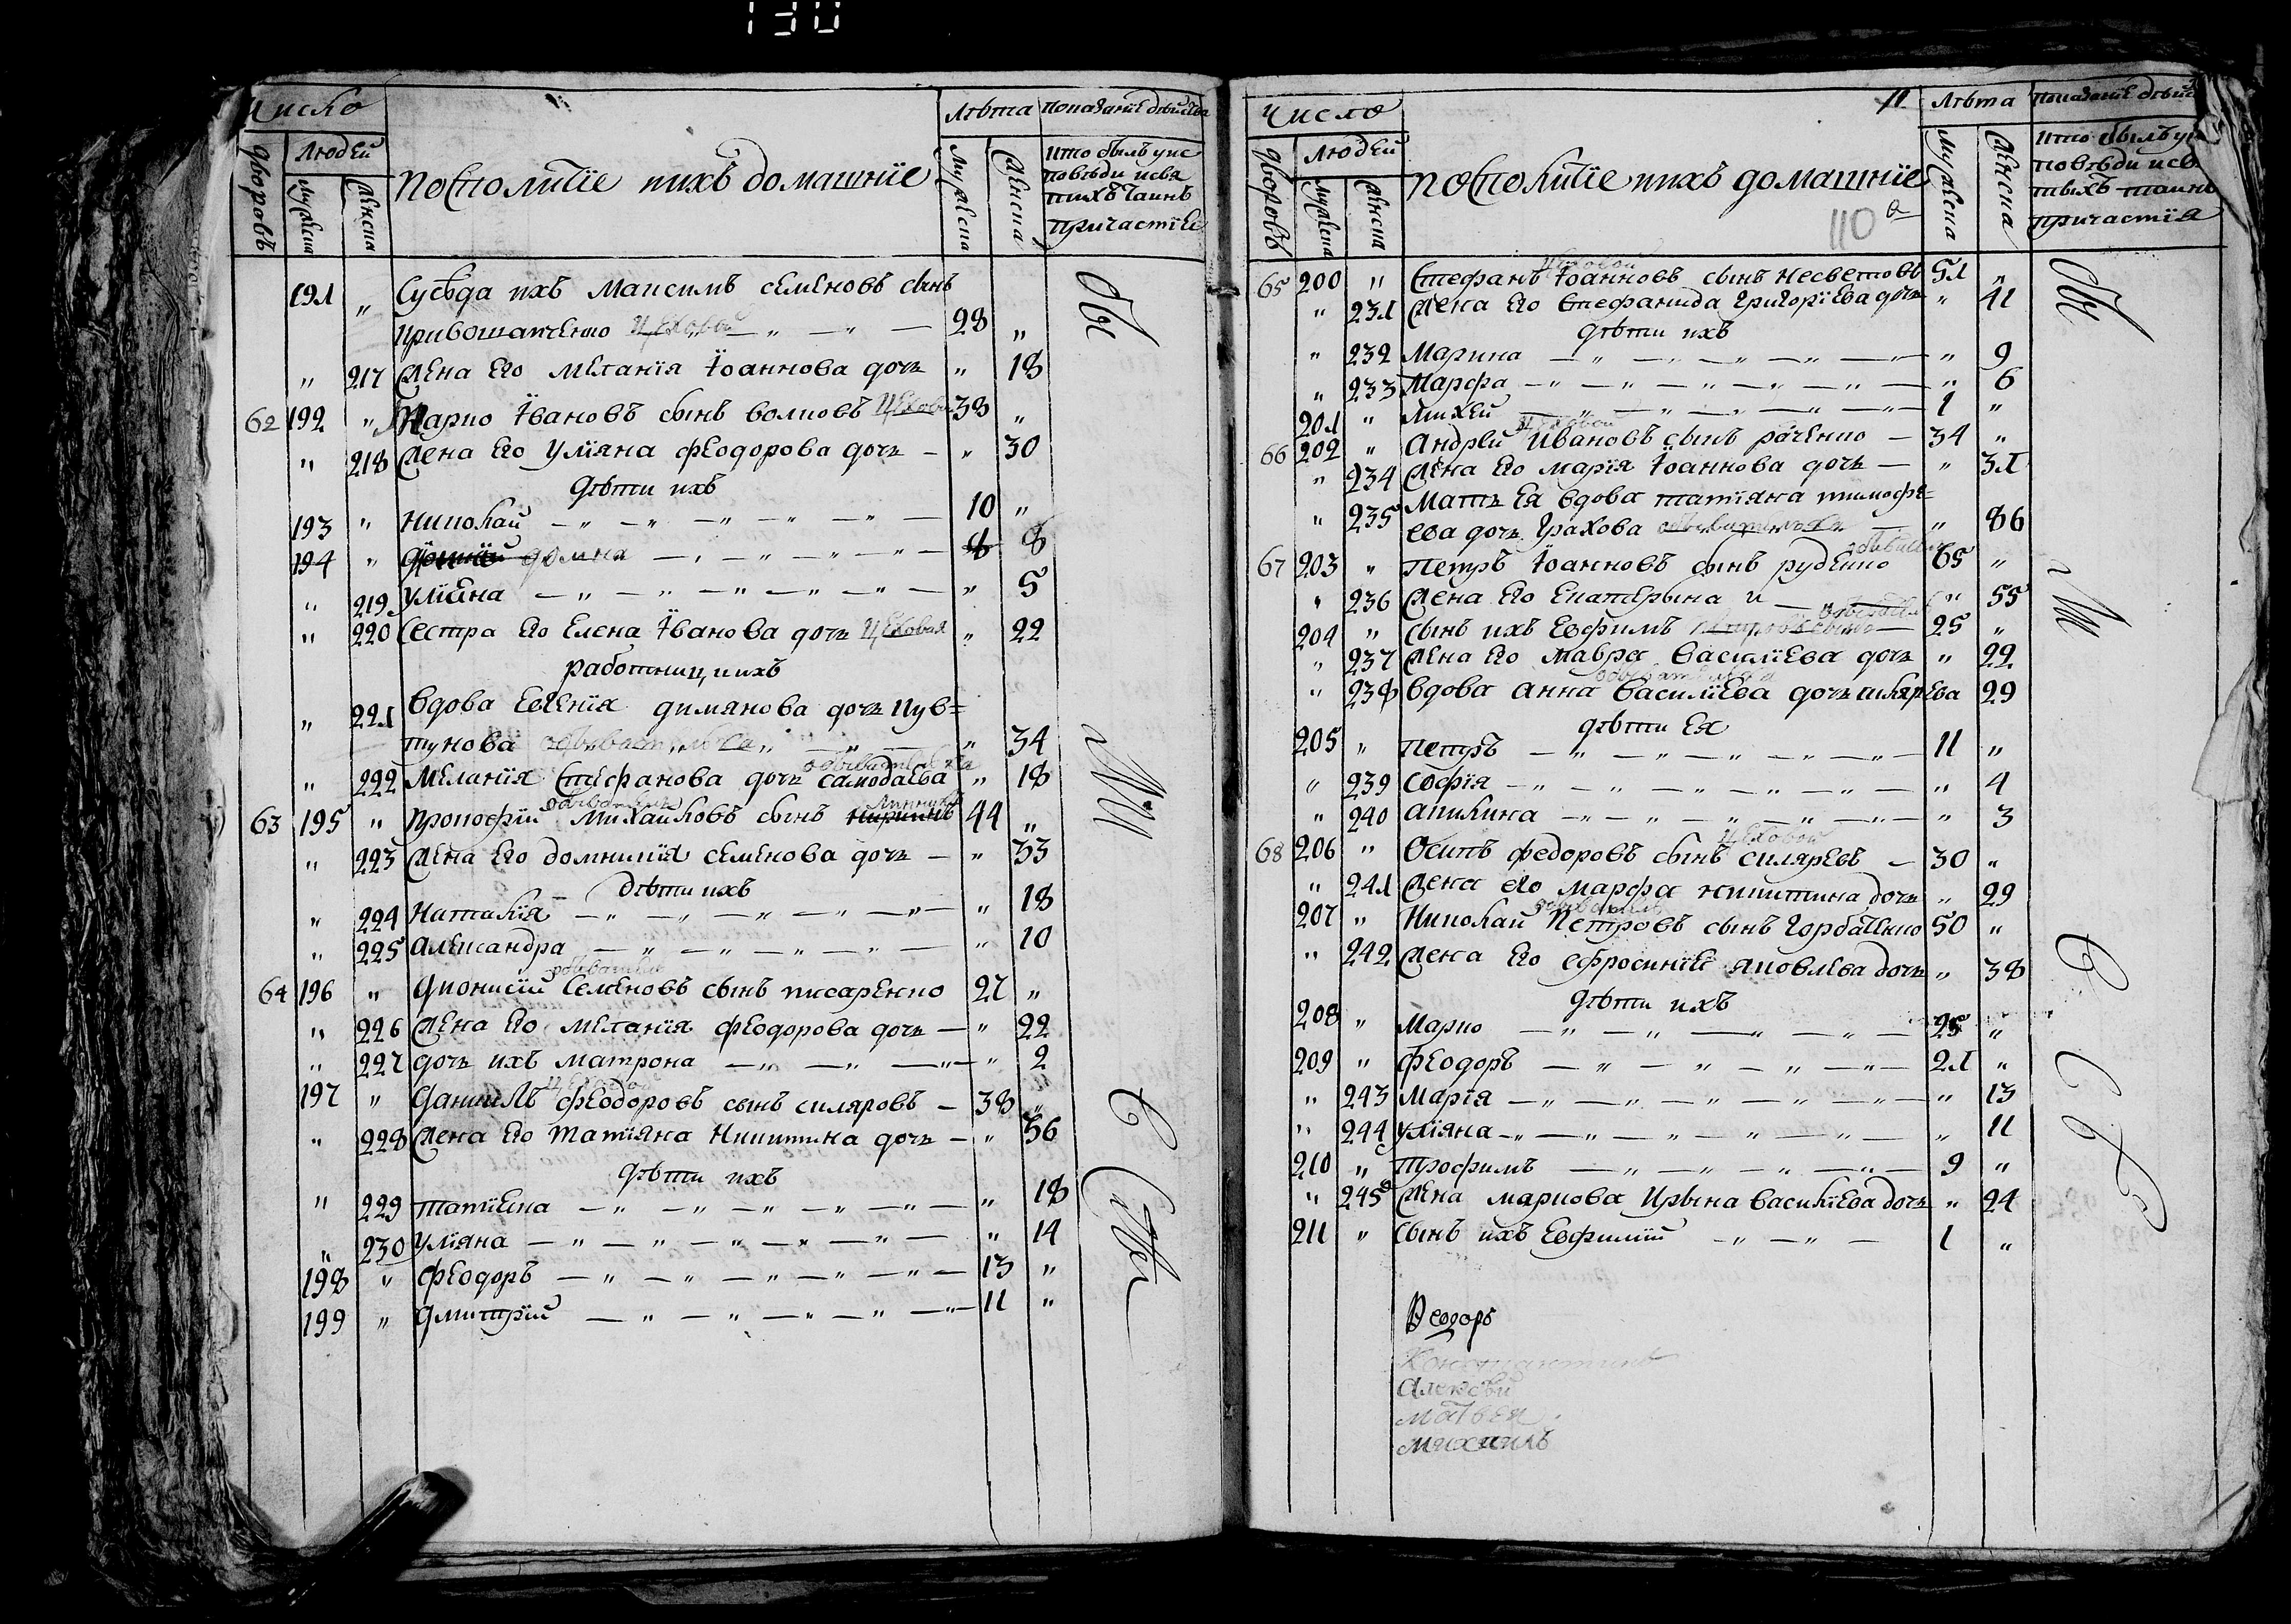 130
Число
Людей
дворовъ
мужеска
женска
посполитїе ихъ домашнїе
Лѣта
мужеска
женска
показанїе дѣйства
кто былъ у ис
повѣди и свя
тихъ таинъ
причастїи
191 „ Сусѣда ихъ Максимъ семеновъ сынъ
Цеховой — „ — „ — 28 „
„ 217 жена его меланїя Їоаннова дочь „ 18
62 192 „ Марко Ївановъ сынъ волковъ Цеховой 38 „
„ 218 жена его Улїяна феодорова дочь — „ 30
дѣти ихъ
193 „ николай — „ — „ — „ — „ — „ — 10 „
194 „ домна — „ — „ — „ — „ — 8 8
„ 219 улїяна — „ — „ — „ — „ — „ — „ 5
„ 220 сестра его Елена Їванова дочь Цеховая „ 22
работници ихъ
„ 221 вдова Евгенїя димянова дочь
тукова — „ — „ — „ 34
обывательская
„ 222 Меланїя Стефанова дочь самодаева „ 18
63 195 „ Прокофїй Михайловъ сынъ 44 „
„ 223 жена его домникїя семенова дочь — „ 33
дѣти ихъ
„ 224 Наталїя — „ — „ — „ — „ — „ — „ 18
„ 225 александра — „ — „ — „ — „ — „ 10
64 196 „ Дионисїй Семеновъ сынъ писаренко 27 „
„ 226 жена его меланїя феодорова дочь — „ 22
„ 227 дочь ихъ матрона — „ — „ — „ — „ 2
цеховой
197 „ Данїилъ феодоровъ сынъ скляровъ — 38 „
„ 228 жена его татїяна никитина дочь — „ 36
дѣти ихъ
„ 229 татїяна — „ — „ — „ — „ — „ — „ 18
„ 230 улїяна — „ — „ — „ — „ — „ — „ 14
198 „ феодоръ — „ — „ — „ — „ — „ — 13 „
199 „ дмитрїй — „ — „ — „ — „ — „ — 11 „
Число
Людей
дворовъ
мужеска
женска
посполитїе ихъ домашнїе
110
Лѣта
мужеска
женска
показанїе дѣйс
кто былъ у ис
повѣди и свя
тыхъ таинъ
причастїя
цеховой
65 200 „ Стефанъ Їоанновъ сынъ несветовъ 51 „
„ 231 жена его Стефанида григорїева дочь „ 41
дѣти ихъ
„ 232 Марина — „ — „ — „ — „ — „ — „ 9
„ 233 Марфа — „ — „ — „ — „ — „ — „ 6
201 „ михей — „ — „ — „ — „ — „ — 1 „
цеховой
66 202 „ андрей Ивановъ сынъ раченко — 34 „
„ 234 жена его марїя Їоаннова дочь — „ 31
„ 235 мать ея вдова татїяна тимофѣ=
ева дочь грахова — „ 86
67 203 „ петръ Їоанновъ сынъ руденко 65 „
„ 236 жена его Екатерына „ 55
204 „ сынъ ихъ Евфимъ 25 „
„ 237 жена его мавра василїева дочь „ 22
„ 238 вдова анна василїева дочь шкярева 29
дѣти ея
205 „ петръ — „ — „ — „ — „ — „ — 11 „
„ 239 софїя — „ — „ — „ — „ — „ — „ 4
„ 240 акилина — „ — „ — „ — „ — „ — „ 3
цеховой
68 206 „ Осипъ федоровъ сынъ скляревъ — 30 „
„ 241 жена его марфа никитина дочь „ 29
207 „ николай Петровъ сынъ горбатенко 50 „
„ 242 жена его ефросинїя яковлева дочь „ 38
дѣти ихъ
208 „ марко — „ — „ — „ — „ — 25 „
209 „ феодоръ — „ — „ — „ — „ — 21 „
„ 243 марїя — „ — „ — „ — „ — „ — „ 13
„ 244 улїяна — „ — „ — „ — „ — „ — „ 11
210 „ трофимъ — „ — „ — „ — „ — 9 „
„ 245 жена маркова Ирына василїева дочь „ 24
211 „ сынъ ихъ Евфимїй — „ — „ — 1 „
Феодоръ
Константинъ
Алексѣй
матвей
михаилъ